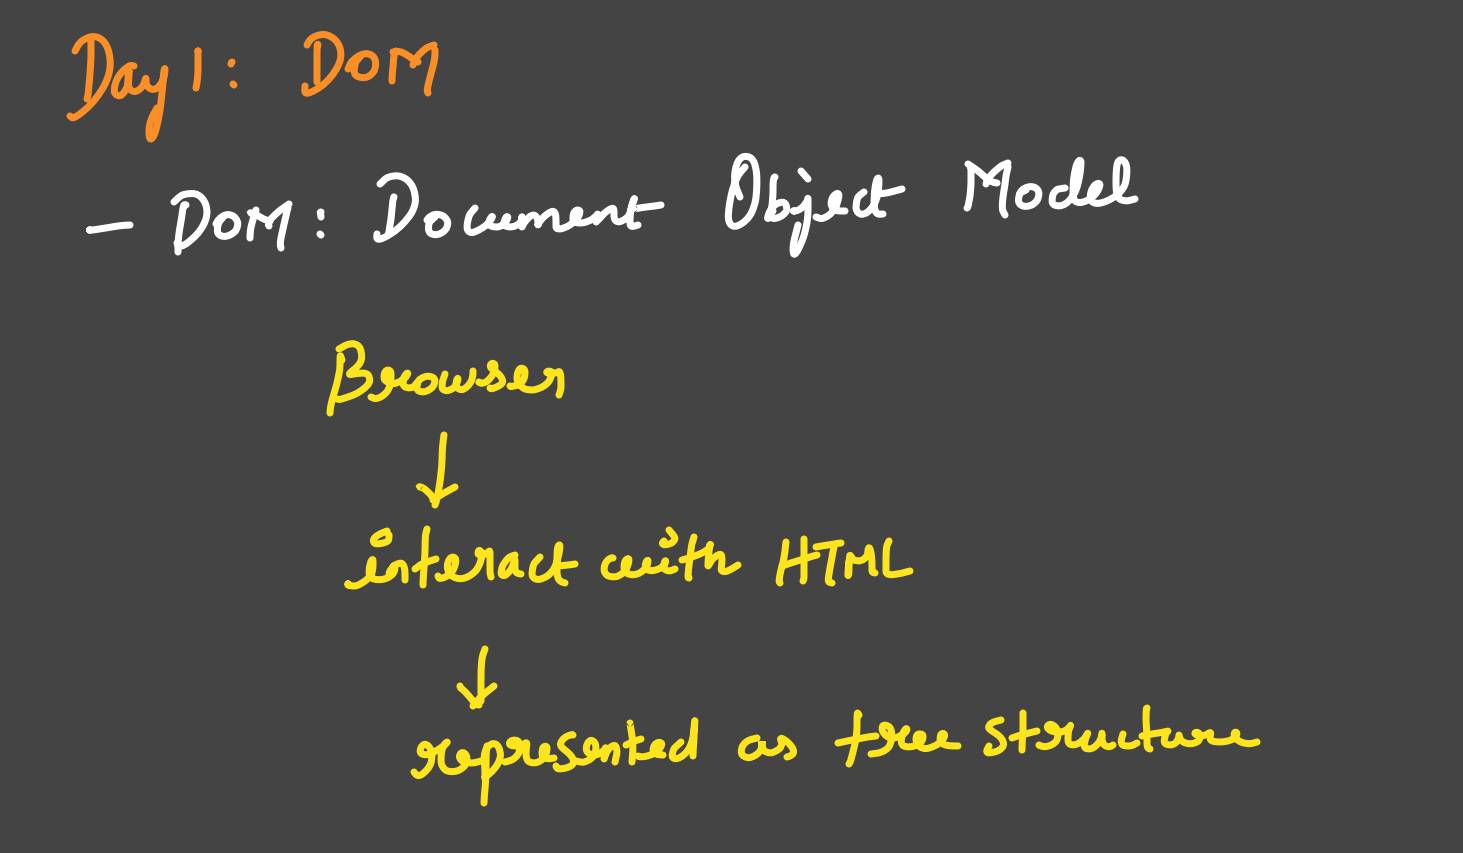 Day 1: DOM
- DOM: Document Object Model
Browser
↓
interact with HTML
↓
represented as tree structure